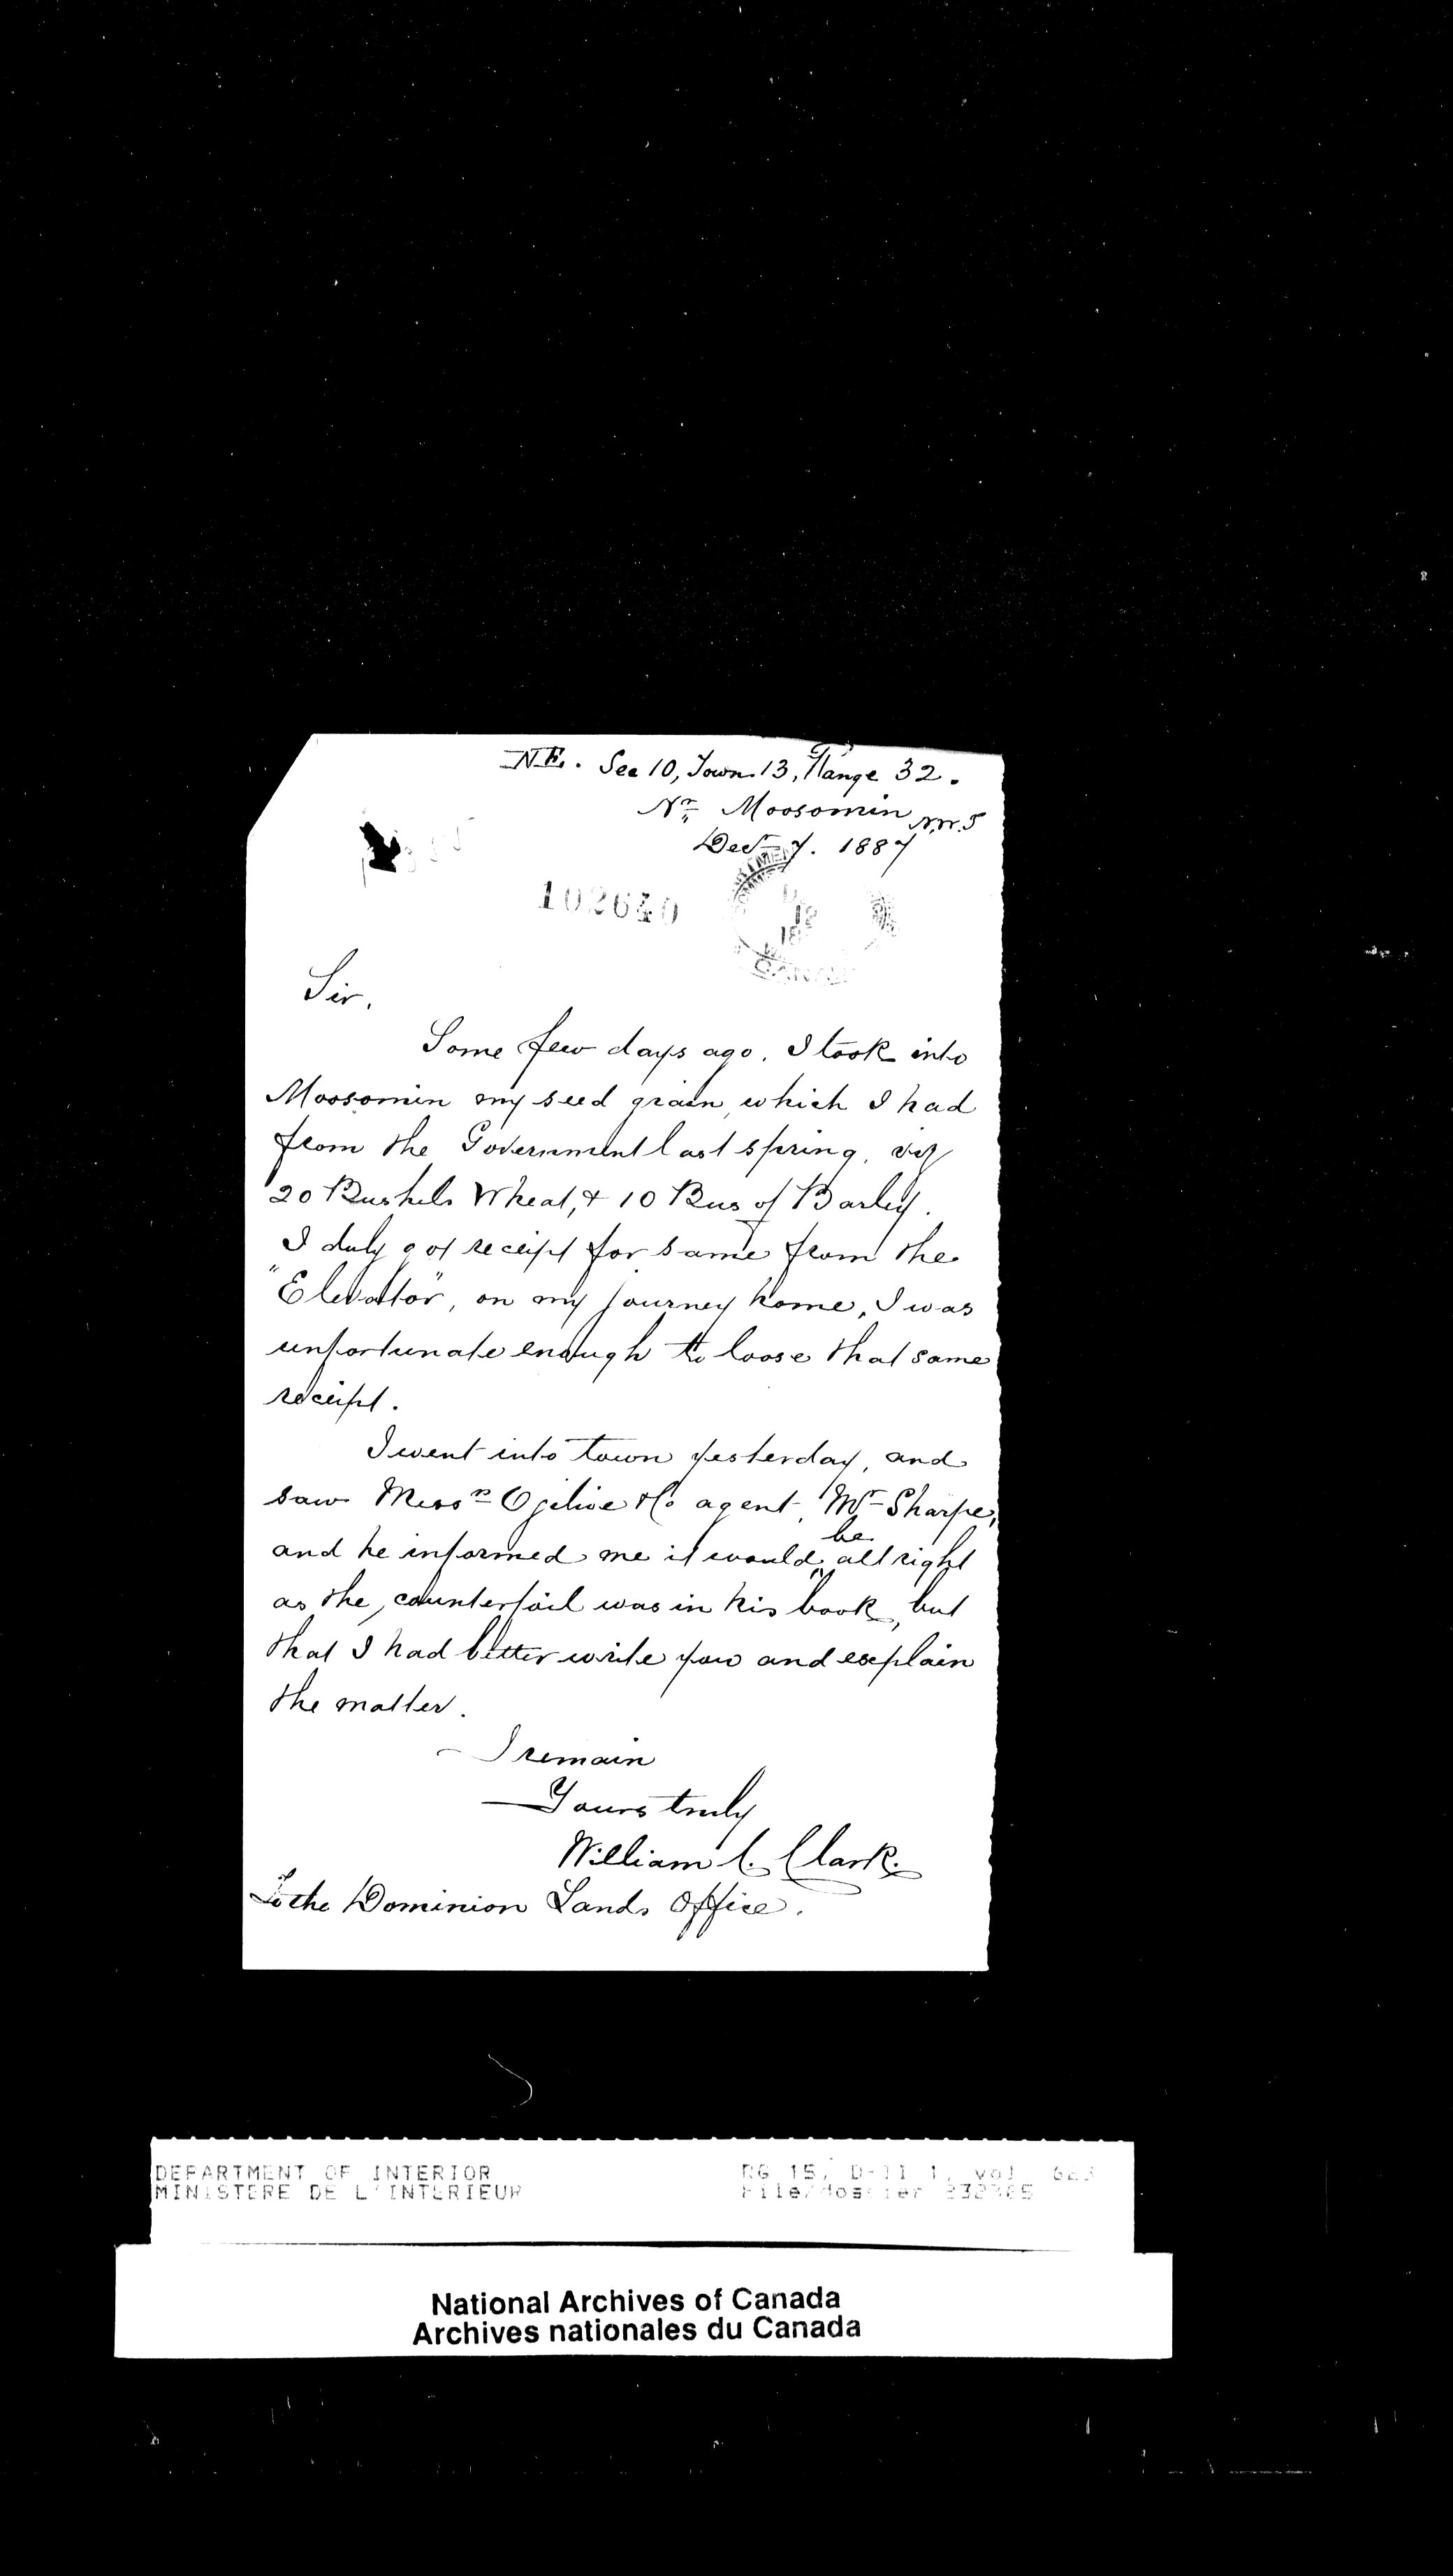 N.E. Sec 10, Town 13, Range 32.
Nr Moosomin N.W.T
Decr 7. 1887
102640
Sir,
Some few days ago, I took into
Moosomin my seed grain, which I had
from the Government last spring, viz
20 Bushels Wheat, & 10 Bus of Barley.
I duly got receipt for same from the
"Elevator", on my journey home, I was
unfortunate enough to loose that same
receipt.
I went into town yesterday, and
saw Messrs Ogilvie & Co agent, Mr Sharpe,
and he informed me it would be all right
as the counterfoil was in his book, but
that I had better write you and explain
the matter.
I remain
Yours truly
William C. Clark.
To the Dominion Lands Office.
DEPARTMENT OF INTERIOR
MINISTERE DE L'INTERIEUR
RG 15, D-II 1, vol
File/dossier 232365
National Archives of Canada
Archives nationales du Canada